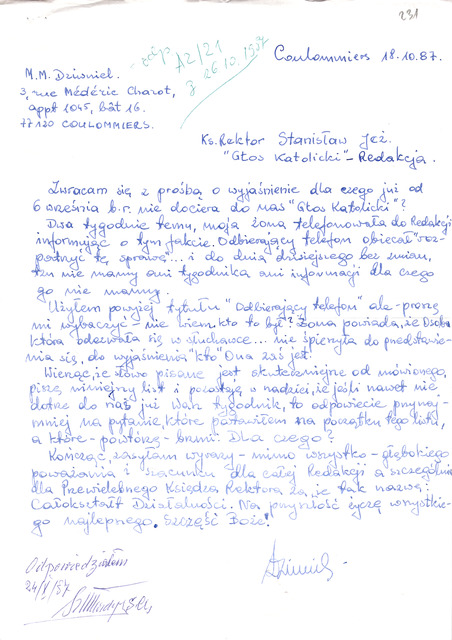 231
Coulommiers 18.10.87.
odp A2/21
z 26.10.1987
M.M. Dzisniel.
3, rue Médéric Charot,
appt 1045, bât 16.
77120 COULOMMIERS.
Ks. Rektor Stanisław Jeż.
"Głos Katolicki" - Redakcja.
Zwracam się z prośbą o wyjaśnienie dla czego już od
6 września b.r. nie dociera do nas "Głos Katolicki"?
Dwa tygodnie temu, moja żona telefonowała do Redakcji
informując o tym fakcie. Odbierający telefon obiecał "roz-
patrzyć tę sprawę"... i do dnia dzisiejszego bez zmian,
tzn nie mamy ani tygodnika ani informacji dla czego
go nie mamy.
Użyłem powyżej tytułu "Odbierający telefon" ale - proszę
mi wybaczyć - nie wiem kto to był? Żona powiada, że Osoba
która odezwała się w słuchawce... nie śpieszyła do przedstawie-
nia się, do wyjaśnienia "kto" Ona zaś jest!
Wierząc, że słowo pisane jest skuteczniejsze od mówionego,
piszę niniejszy list i pozostaję w nadziei, że jeśli nawet nie
dotrze do nas już Wasz tygodnik, to odpowiecie przynaj-
mniej na pytanie, które postawiłem na początku tego listu,
a które - powtórzę - brzmi: Dla czego?
Kończąc, zasyłam wyrazy - mimo wszystko - głębokiego
poważania i szacunku dla całej Redakcji a szczególnie
dla Przewielebnego Księdza Rektora za, że tak nazwę:
Całokształt Działalności. Na przyszłość życzę wszystkie-
go najlepszego. Szczęść Boże!
Odpowiedziałem